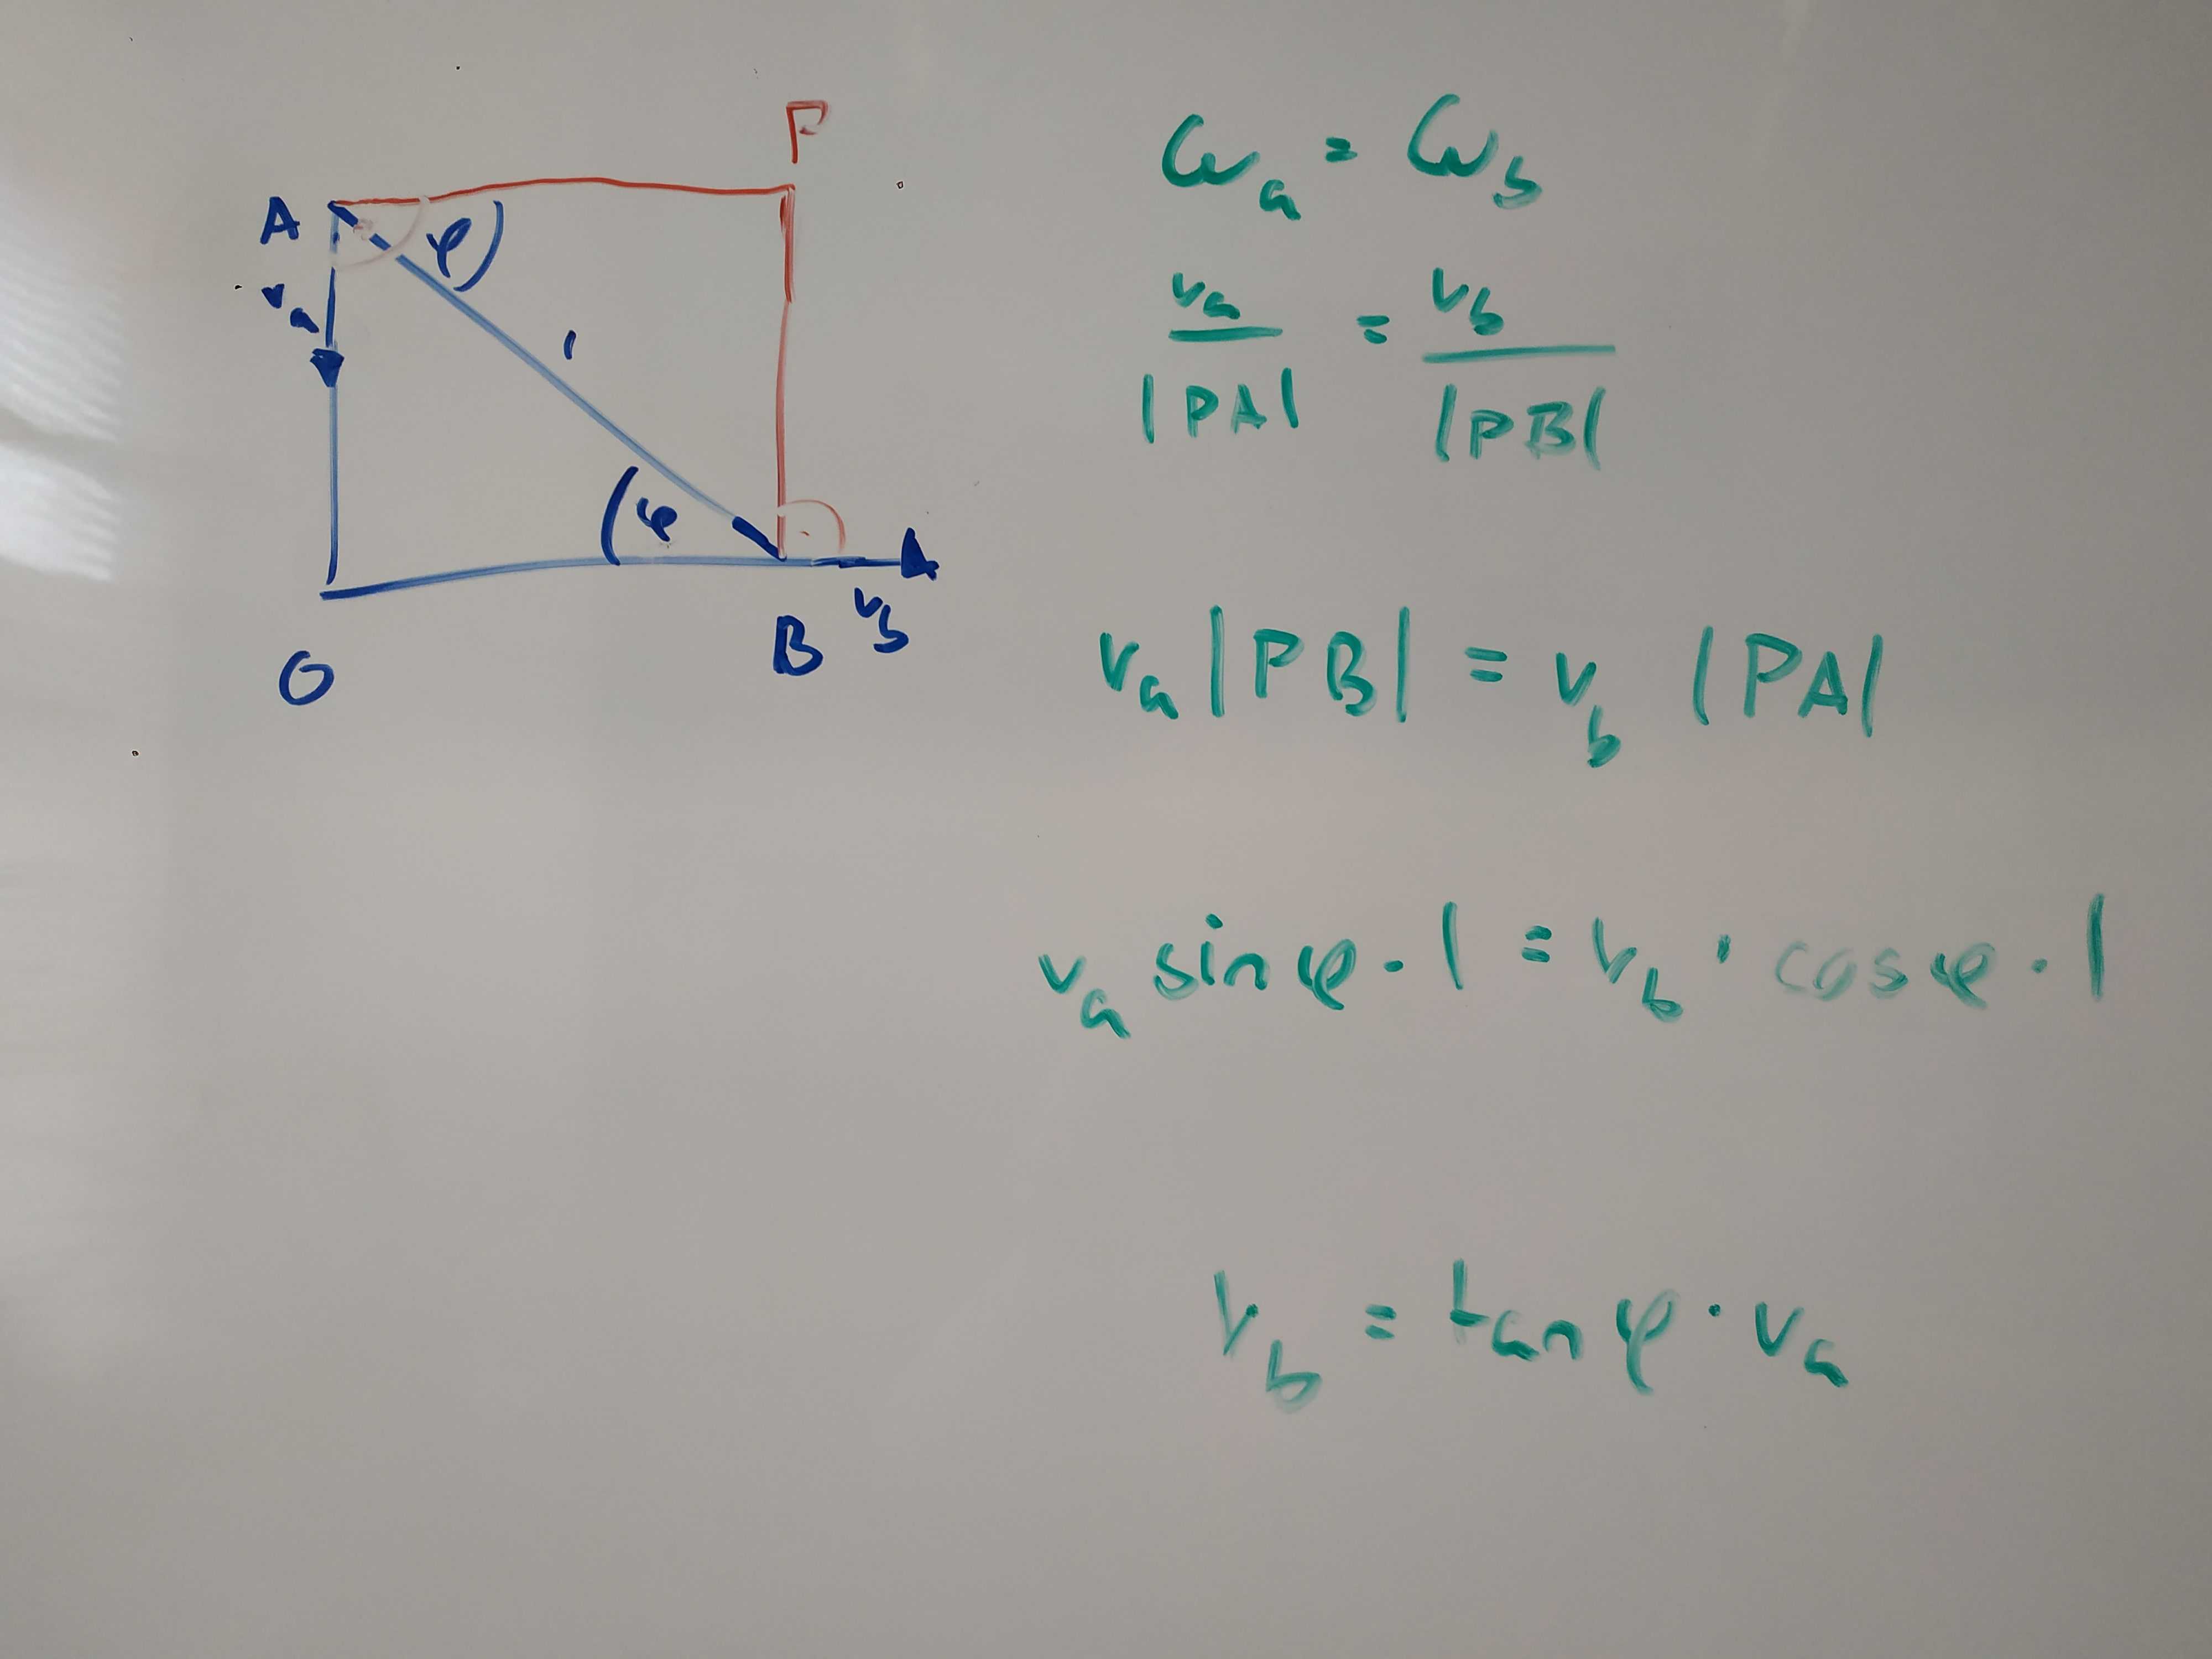 P
A
φ
v_a
l
φ
B
v_b
O
ω_a = ω_b
v_a / |PA| = v_b / |PB|
v_a |PB| = v_b |PA|
v_a sin φ · l = v_b · cos φ · l
v_b = tan φ · v_a